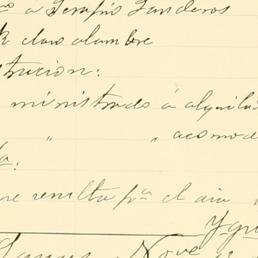 a Serapio Landeros
clavo alambre
trucion:
ministrado á alquilad
" " acomod
a:
re resulta pa el dia
Nove